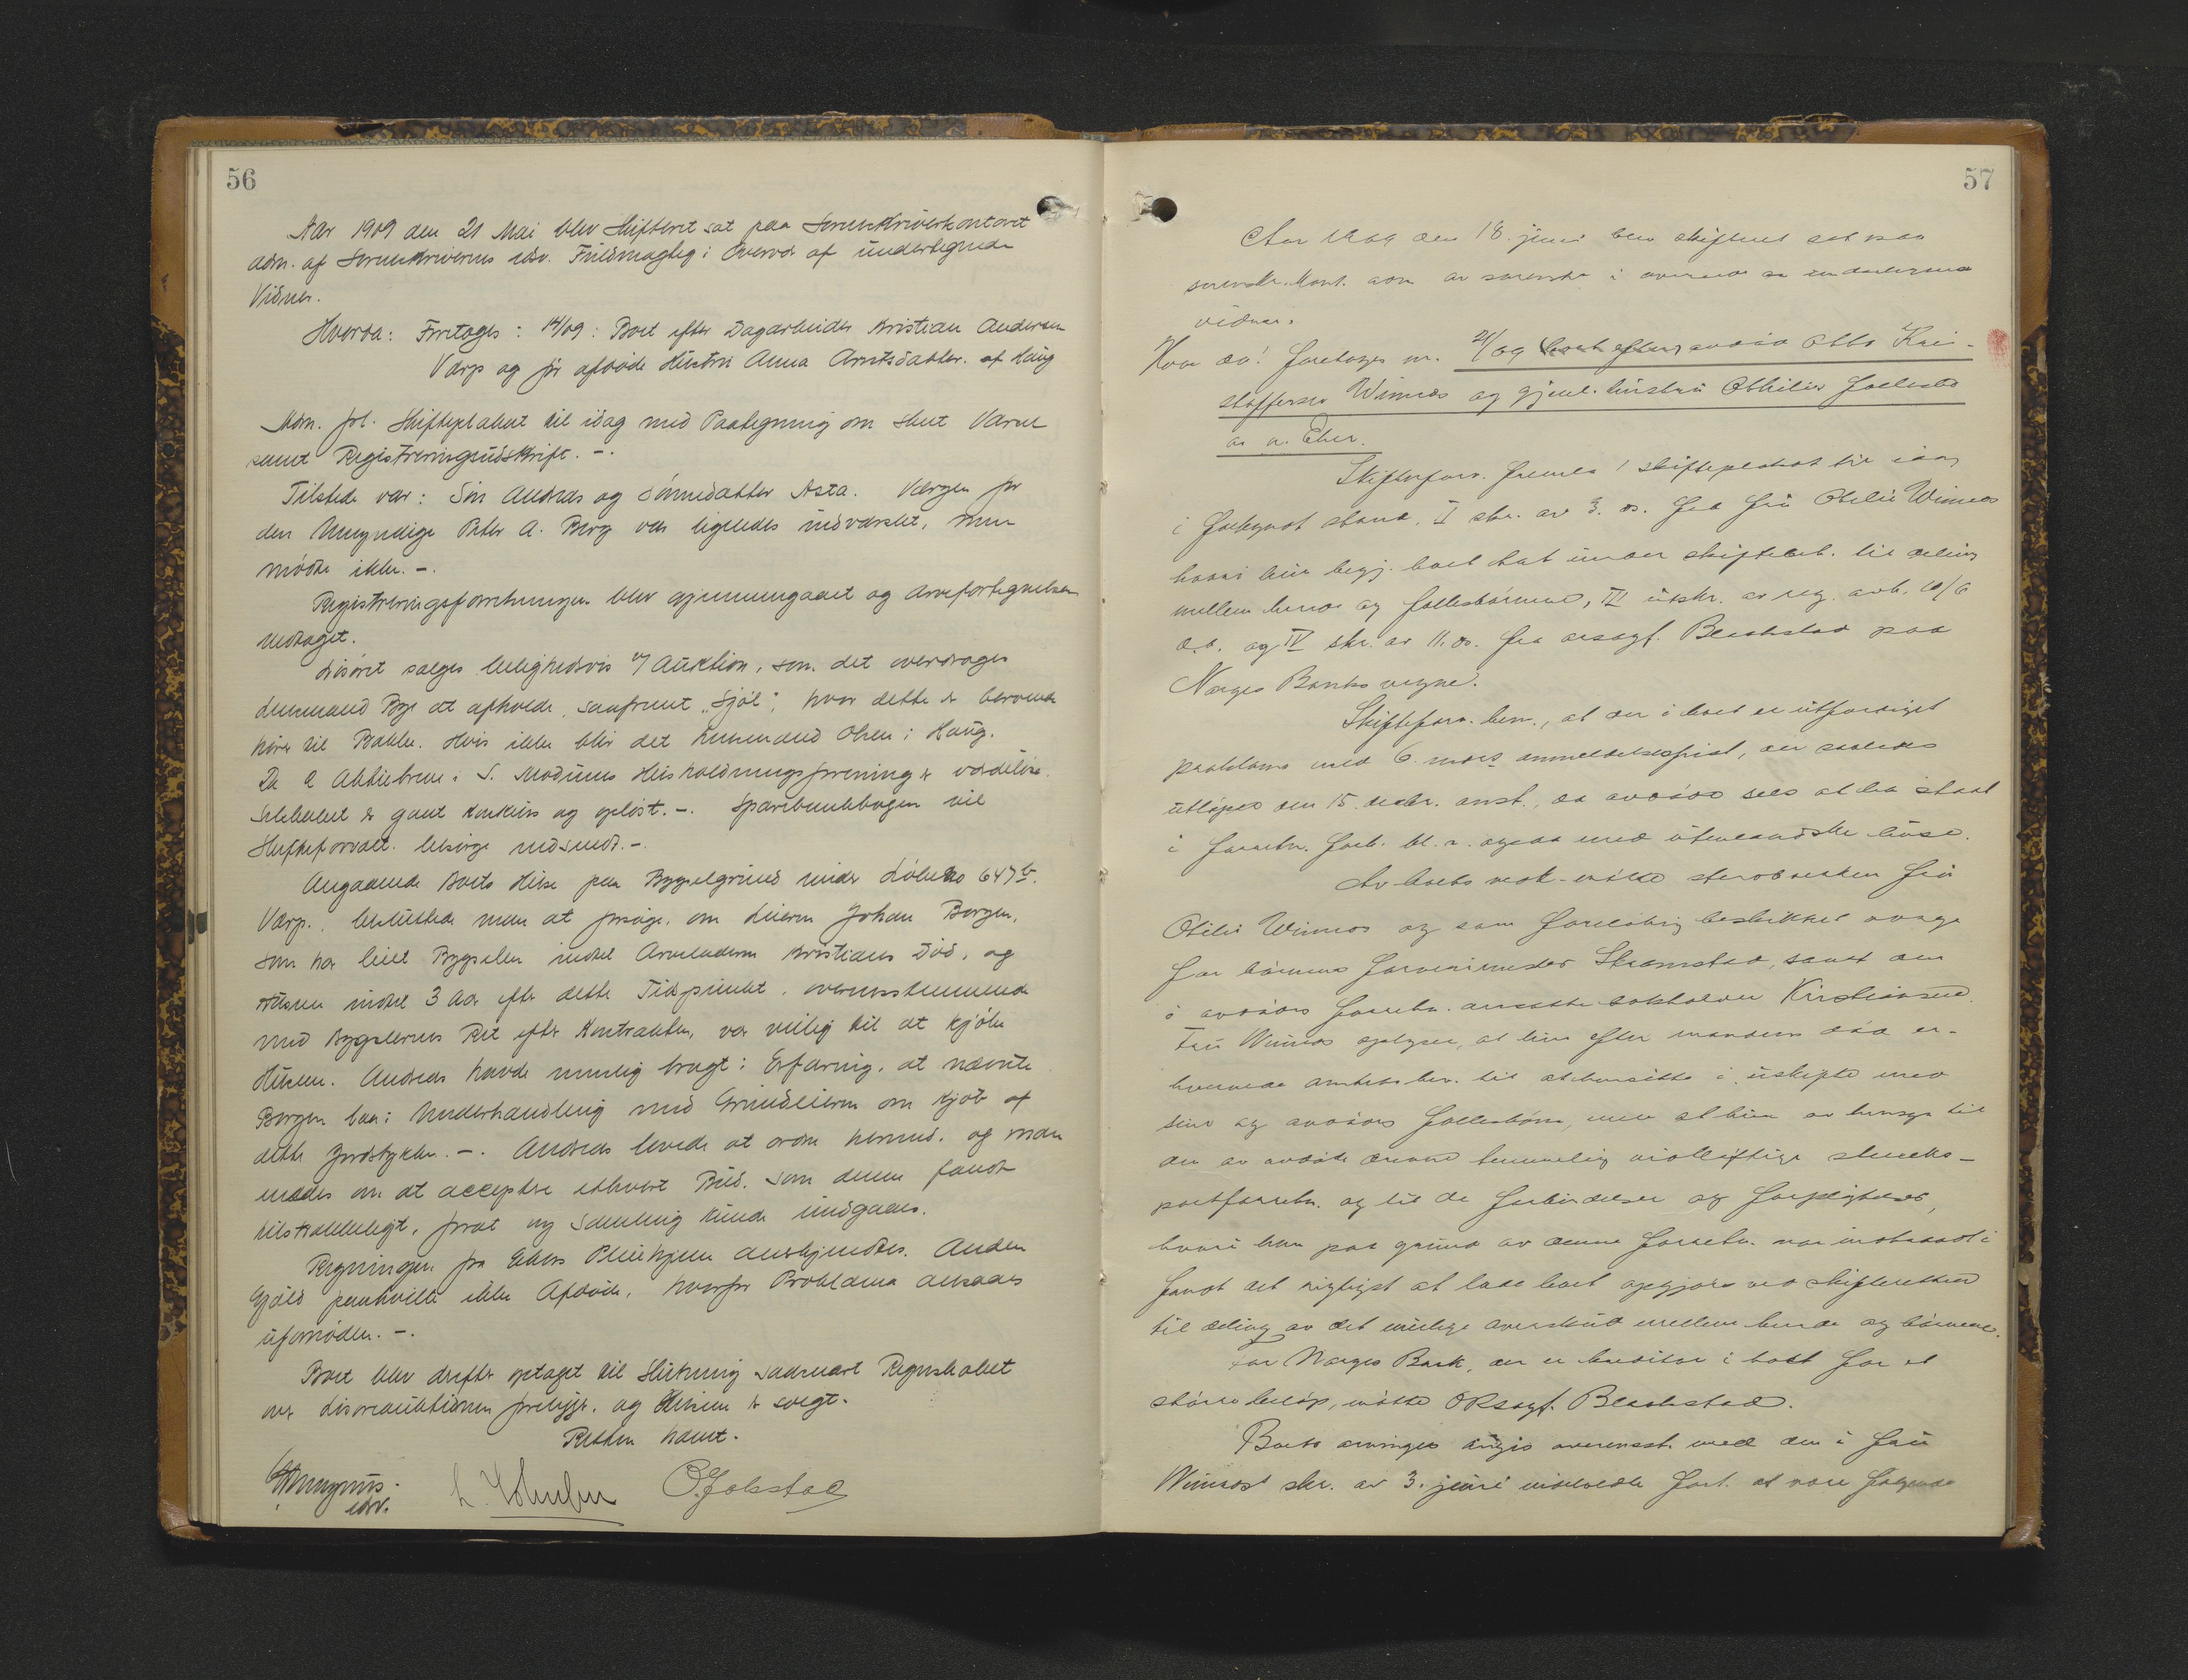 56
Aar 1909 den 21 Mai blev Skifteret sat paa Sorenskriverkontoret
adm. af Sorenskriverens edsv. Fuldmægtig i Overvær af undertegnede
Vidner.
Hvorda: Foretoges: 14/09: Boet efter Dagarbeider Kristian Andersen
Varp og før afdøde Hustru Anna Arntsdatter af Haug
Adm. frl. Skifteplakat til idag med Paategning om skeet Varsel
samt Registreringsudskrift. -.
Tilstede var: Søn Andreas og Sønnedatter Asta. Værgen for
den Umyndige Peter A. Berg var ligeledes indvarslet, men
mødte ikke. -.
Registreringsforretningen blev gjennemgaaet og Arvefortegnelsen
vedtaget.
Løsøret sælges leilighedsvis v/ Auktion, som det overdrages
Lensmand Bye at afholde, saafremt "Sjøl", hvor dette er beroende
hører til Bakke. Hvis ikke blir det Lensmand Olsen i Haug.
De 2 Aktiebreve i S. Modums Husholdningsforening er værdiløse.
Selskabet er gaaet konkurs og opløst. -. Sparebankbogen vil
Skifteforvalt. besørge indsendt. -
Angaaende Boets Huse paa Bygselgrund under Løbeno 647 b.
Varp, besluttede man at forsøge, om Leieren Johan Borgen,
som har leiet Bygselen indtil Arveladeren Kristians Død, og
videre indtil 3 Aar efter dette Tidspunkt, overensstemmende
med Bygslerens Ret efter Kontrakten, var villig til at kjøbe
Husene. Andreas havde nemlig bragt i Erfaring, at nævnte
Borgen laa i Underhandling med Grundeieren om Kjøb af
dette Jordstykke. -. Andreas lovede at ordne hermed, og man
enedes om at acceptere ethvert Bud, som denne fandt
tilstrækkeligt, forat ny Samling kunde undgaaes.
Regningen fra Ekers Pleiehjem anerkjendtes. Anden
Gjæld paahvilte ikke Afdøde, hvorfor Proklama ansaaes
ufornøden. -.
Boet blev derefter optaget til Slutning saasnart Regnskabet
over Løsøreauktionen foreligger, og Husene er solgt.
Retten hævet.
edsv.
O. Jokstad
57
Aar 1909 den 18. juni blev skifteret sat paa
sorenskr. kont. adm. av sorenskr. i overvær av undertegnede
vidner.
Hvor da: foretoges nr. 21/09 avdøde Otto Kri-
stoffersen Winnæs og gjenl. hustru Othilie Jællebo
av n. Eker.
Skifteforv. fremla I skifteplakat til idag
i forkyndt stand, II skr. av 3. ds. fra fru Otilie Winnæs
hvori hun begj. boet tat under skiftebeh. til deling
mellem hende og fællesbørnene, III utskr. av reg. avh. 10/6
d.a. og IV skr. av 11. ds. fra orsagf. Blakstad paa
Norges Banks vegne.
Skifteforv. bem., at der i boet er utfærdiget
proklama med 6 mdrs anmeldelsesfrist, der saaledes
utløper den 15. decbr. anst., da avdøde sees at ha staat
i forretn. forb. bl. a. ogsaa med utenlandske huse.
Av boets vedk. møtte sterbvesken fru
Otilie Winnæs og som foreløbig beskikket værge
for børnene farverimester Stramstad, samt den
i avdødes forretn. ansatte bokholder Kristiansen.
Fru Winnæs oplyser, at hun efter mandens død er-
hvervede amtets bev. til at hensitte i uskifte med
sine og avdødes fællesbørn, men at hun av hensyn til
den av avdøde drevne temmelig vidløftige
forretn. og til de forbindelser og forpligtelser,
hvori han paa grund av denne forretn. var indtraadt i
fandt det rigtigst at lade boet opgjøre ved skifteretten
til deling av det mulige overskud mellem hende og børnene.
For Norges Bank, der er kreditor i boet for et
større beløp, møtte ORsagf. Blakstad.
Boets arvinger angis overensst. med den i fru
Winnæs' skr. av 3. juni indeholdte fort. at være følgende